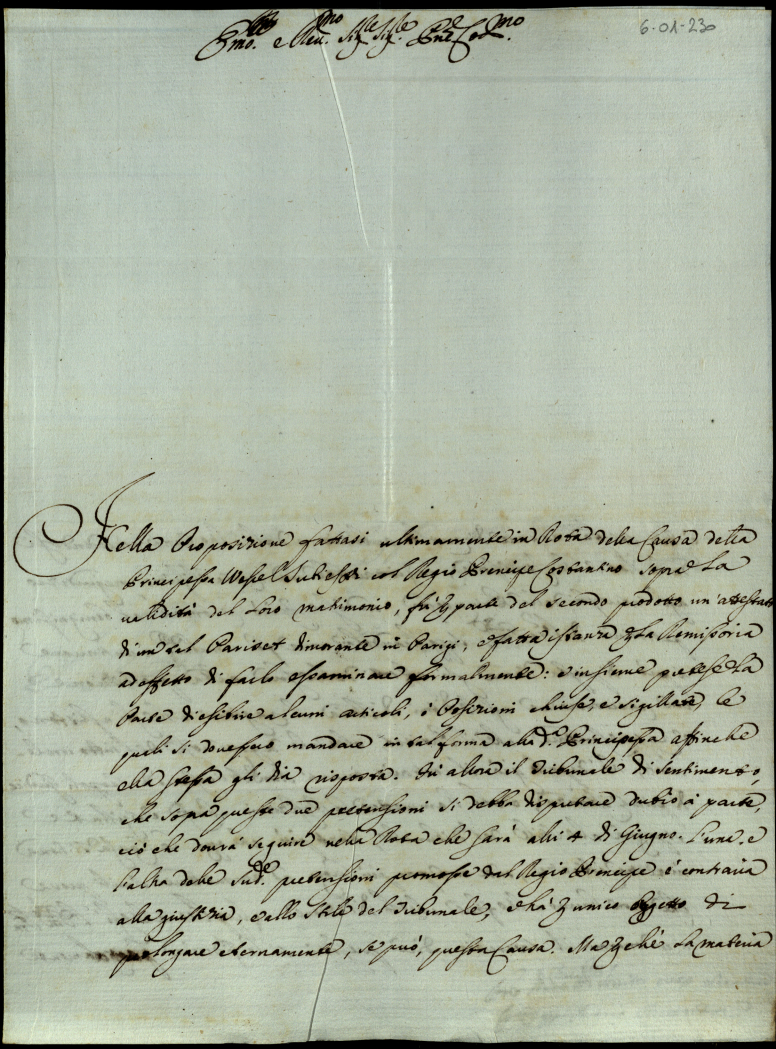 6-01-230
Emo. e Reu.mo Sig.re Sig.re Pne Col.mo
Nella Proposizione fattasi ultimamente in Rota della Causa della
Principessa Wessel Subieschi col Regio Prencipe Costantino sopra La
validità del Loro matrimonio, fù p parte del secondo prodotto un'attestato
di un tal Pariset dimorante in Parigi, e fatta istanza p La Remissoria
ad effetto di farlo essaminare formalmente: e insieme pretese La
Parte di esibire alcuni articoli, ò Posizioni chiuse, e sigillate, le
quali si dovessero mandare in tal forma alla d.a Principessa affinche
ella stessa gli dia risposta. Fù allora il Tribunale di sentimento,
che sopra queste due pretensioni si debba disputare dubio à parte,
ciò che dourà seguire nella Rota che sarà alli 4 di Giugno. L'una, e
l'altra delle Sud.e pretensioni promosse dal Regio Prencipe è contraria
alla giustizia, e allo Stile del Tribunale, e hà p unico oggetto di
prolongare eternamente, se può, questa Causa. Ma p che La materia